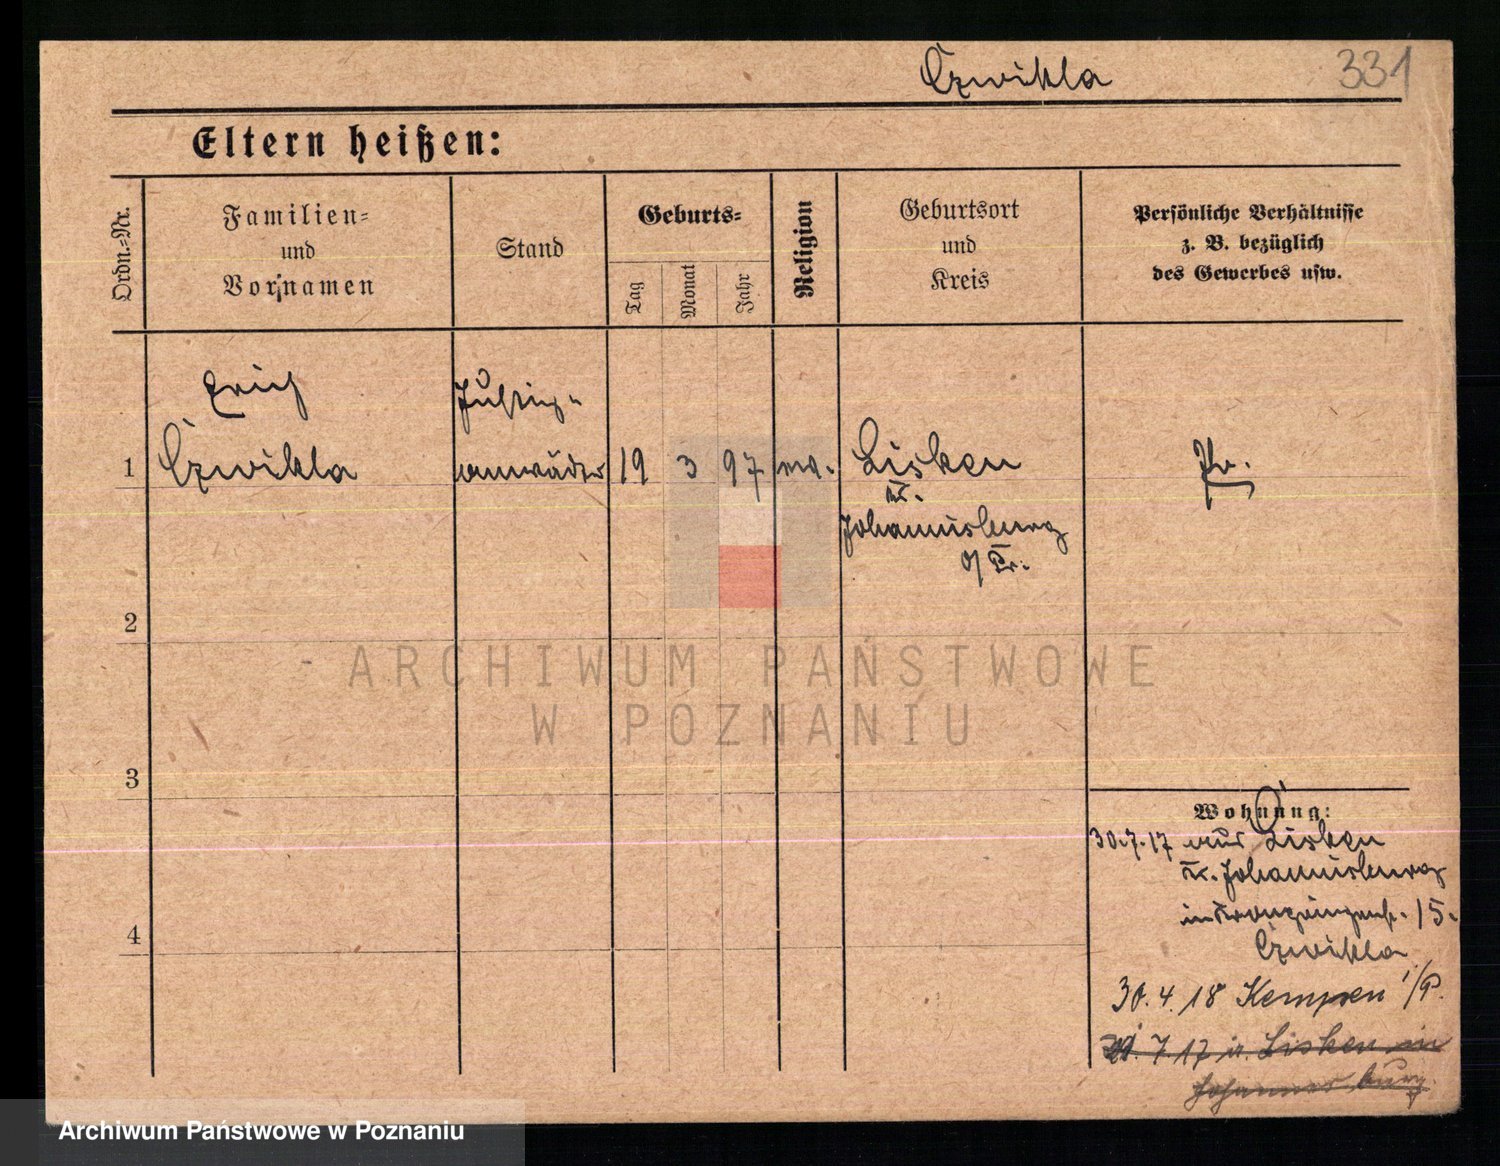 Czwikla 331
Eltern heißen:
Ordn.=Nr.
Familien=
und
Vornamen
Stand
Geburts=
Tag
Monat
Jahr
Religion
Geburtsort
und
Kreis
Persönliche Verhältnisse
z. B. bezüglich
des Gewerbes usw.
Erich
Czwikla
Justiz-
anwärter
1
19 3 97
Lisken
Kr.
Johannisburg
O/Pr.
Pr.
2
3
4
Wohnung:
30.7.17 aus Lisken
Kr. Johannisburg
in Kronprinzenstr. 15.
Czwikla
30.4.18 Kempen i/P.
7.17 n. Lisken in
Johannesburg.
ARCHIWUM PAŃSTWOWE
W POZNANIU
Archiwum Państwowe w Poznaniu